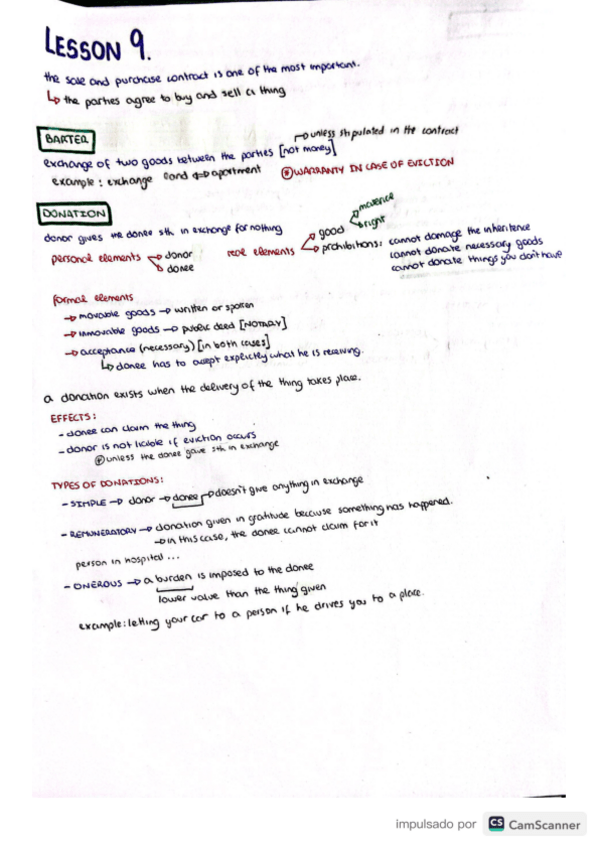 LESSON 9.
the sale and purchase contract is one of the most important.
↳ the parties agree to buy and sell a thing
BARTER
unless stipulated in the contract
exchange of two goods between the parties [not money]
example: exchange land ↔ apartment
* WARRANTY IN CASE OF EVICTION
DONATION
donor gives the donee sth in exchange for nothing
personal elements → donor
→ donee
real elements → good → 
→ right
→ prohibitions: cannot damage the inheritence
cannot donate necessary goods
cannot donate things you don't have
formal elements
→ movable goods → written or spoken
→ inmovable goods → public deed [NOTARY]
→ acceptance (necessary) [in both cases]
↳ donee has to accept explicitly what he is receiving.
a donation exists when the delivery of the thing takes place.
EFFECTS:
- donee can claim the thing
- donor is not liable if eviction occurs
* unless the donee gave sth in exchange
TYPES OF DONATIONS:
- SIMPLE → donor → donee → doesn't give anything in exchange
- REMUNERATORY → donation given in gratitude because something has happened.
→ in this case, the donee cannot claim for it
person in hospital ...
- ONEROUS → a burden is imposed to the donee
lower value than the thing given
example: letting your car to a person if he drives you to a place.
impulsado por CS CamScanner